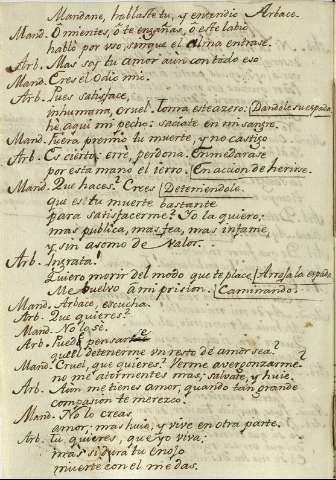 Mandane, hablaste tu, y entendio Arbace.
Mand. O mientes, ò te engañas, o este labio
hablò por uso, sin que el alma entrase.
Arb. Mas soy tu amor aun con todo eso
Mand. Eres el odio mio.
Arb. Pues satisface,
inhumana, cruel. Toma este azero: (Dandole su espada
he aqui mi pecho: saciate en mi sangre.
Mand. Fuera premio tu muerte, y no castigo
Arb. Es cierto: errè, perdona. Enmedarase
por esta mano el ierro. (En accion de herirse.
Mand. Que haces? Crees (Deteniendole.
que es tu muerte bastante
para satisfacerme? Yo la quiero;
mas publica, mas fea, mas infame,
y sin asomo de valor.
Arb. Ingrata!
Quiero morir del modo que te place (Arroja la espada
Me buelvo à mi prision. (Caminando
Mand. Arbace, escucha.
Arb. Que quieres?
Mand. No lo sè.
Arb. Puede pensarse
que el detenerme un resto de amor sea?
Mand. Cruel, que quieres? Verme avergonzarme
no me atormentes mas; salvate, y huie.
Arb. Aun me tienes amor, quando tan grande
compasion te merezco?
Mand. No lo creas
amor; mas huie, y vive en otra parte.
Arb. Tu quieres, que yo viva;
mas si dura tu enojo
muerte con el me das.